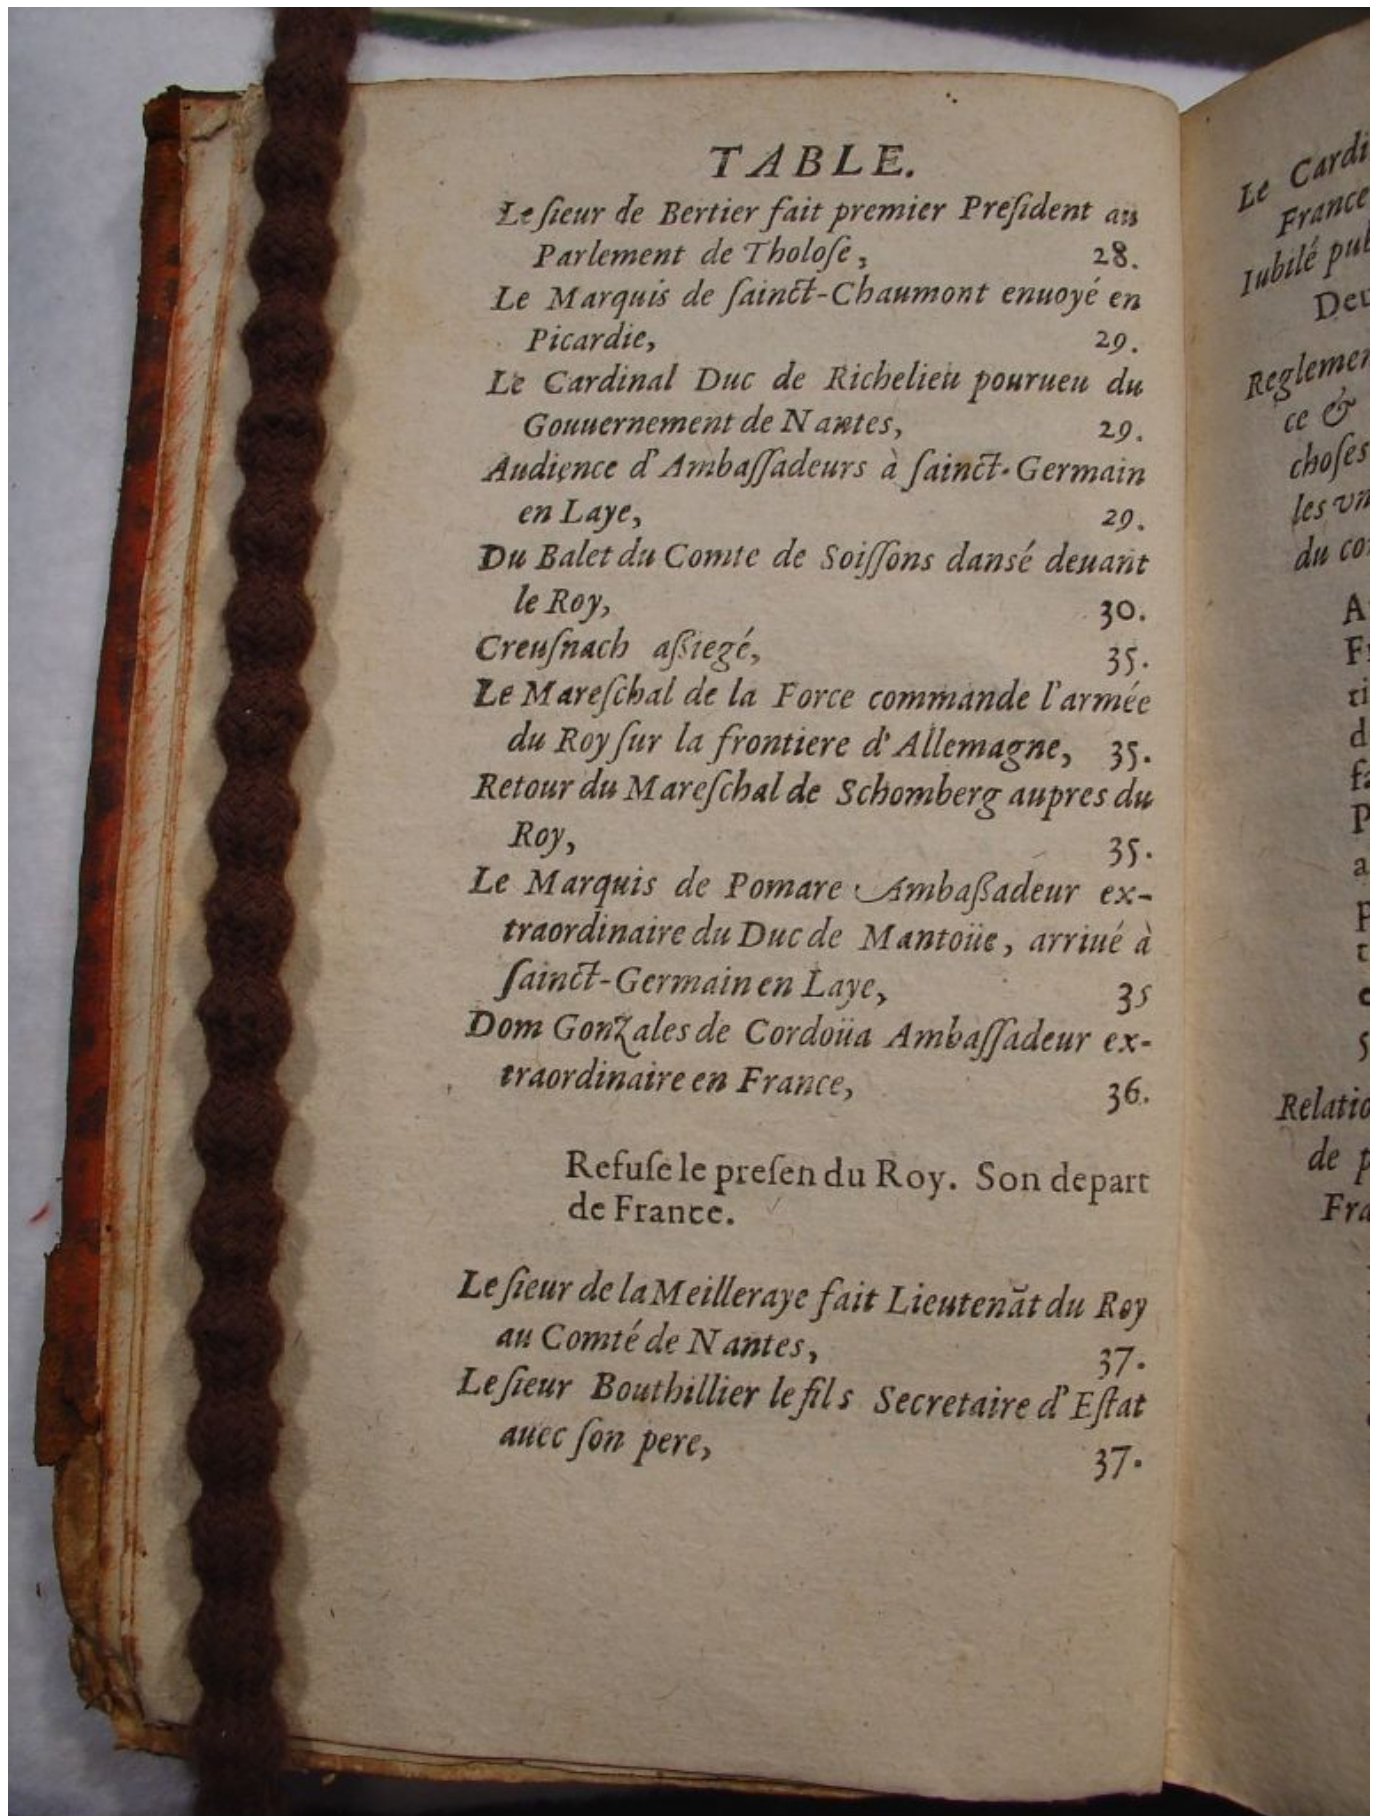 TABLE.
Le ſieur de Bertier fait premier Preſident au
Parlement de Tholoſe, 28.
Le Marquis de ſainct-Chaumont enuoyé en
Picardie, 29.
Le Cardinal Duc de Richelieu pourueu du
Gouuernement de Nantes, 29.
Audience d'Ambaſſadeurs à ſainct-Germain
en Laye, 29.
Du Balet du Comte de Soiſſons dansé deuant
le Roy, 30.
Creuſnach aßiegé, 35.
Le Mareſchal de la Force commande l'armée
du Roy ſur la frontiere d'Allemagne, 35.
Retour du Mareſchal de Schomberg aupres du
Roy, 35.
Le Marquis de Pomare Ambaßadeur ex-
traordinaire du Duc de Mantoüe, arriué à
ſainct-Germain en Laye, 35
Dom Gonzales de Cordoüa Ambaſſadeur ex-
traordinaire en France, 36.
Refuſe le preſen du Roy. Son depart
de France.
Le ſieur de la Meilleraye fait Lieutenãt du Roy
au Comté de Nantes, 37.
Le ſieur Bouthillier le fils Secretaire d'Eſtat
auec ſon pere, 37.
Le Cardi
France
Iubilé pub
Deu
Reglemen
ce &
choſes
les vn
du co
A
Fr
ti
d
fa
P
a
P
t
e
s
Relatio
de p
Fra